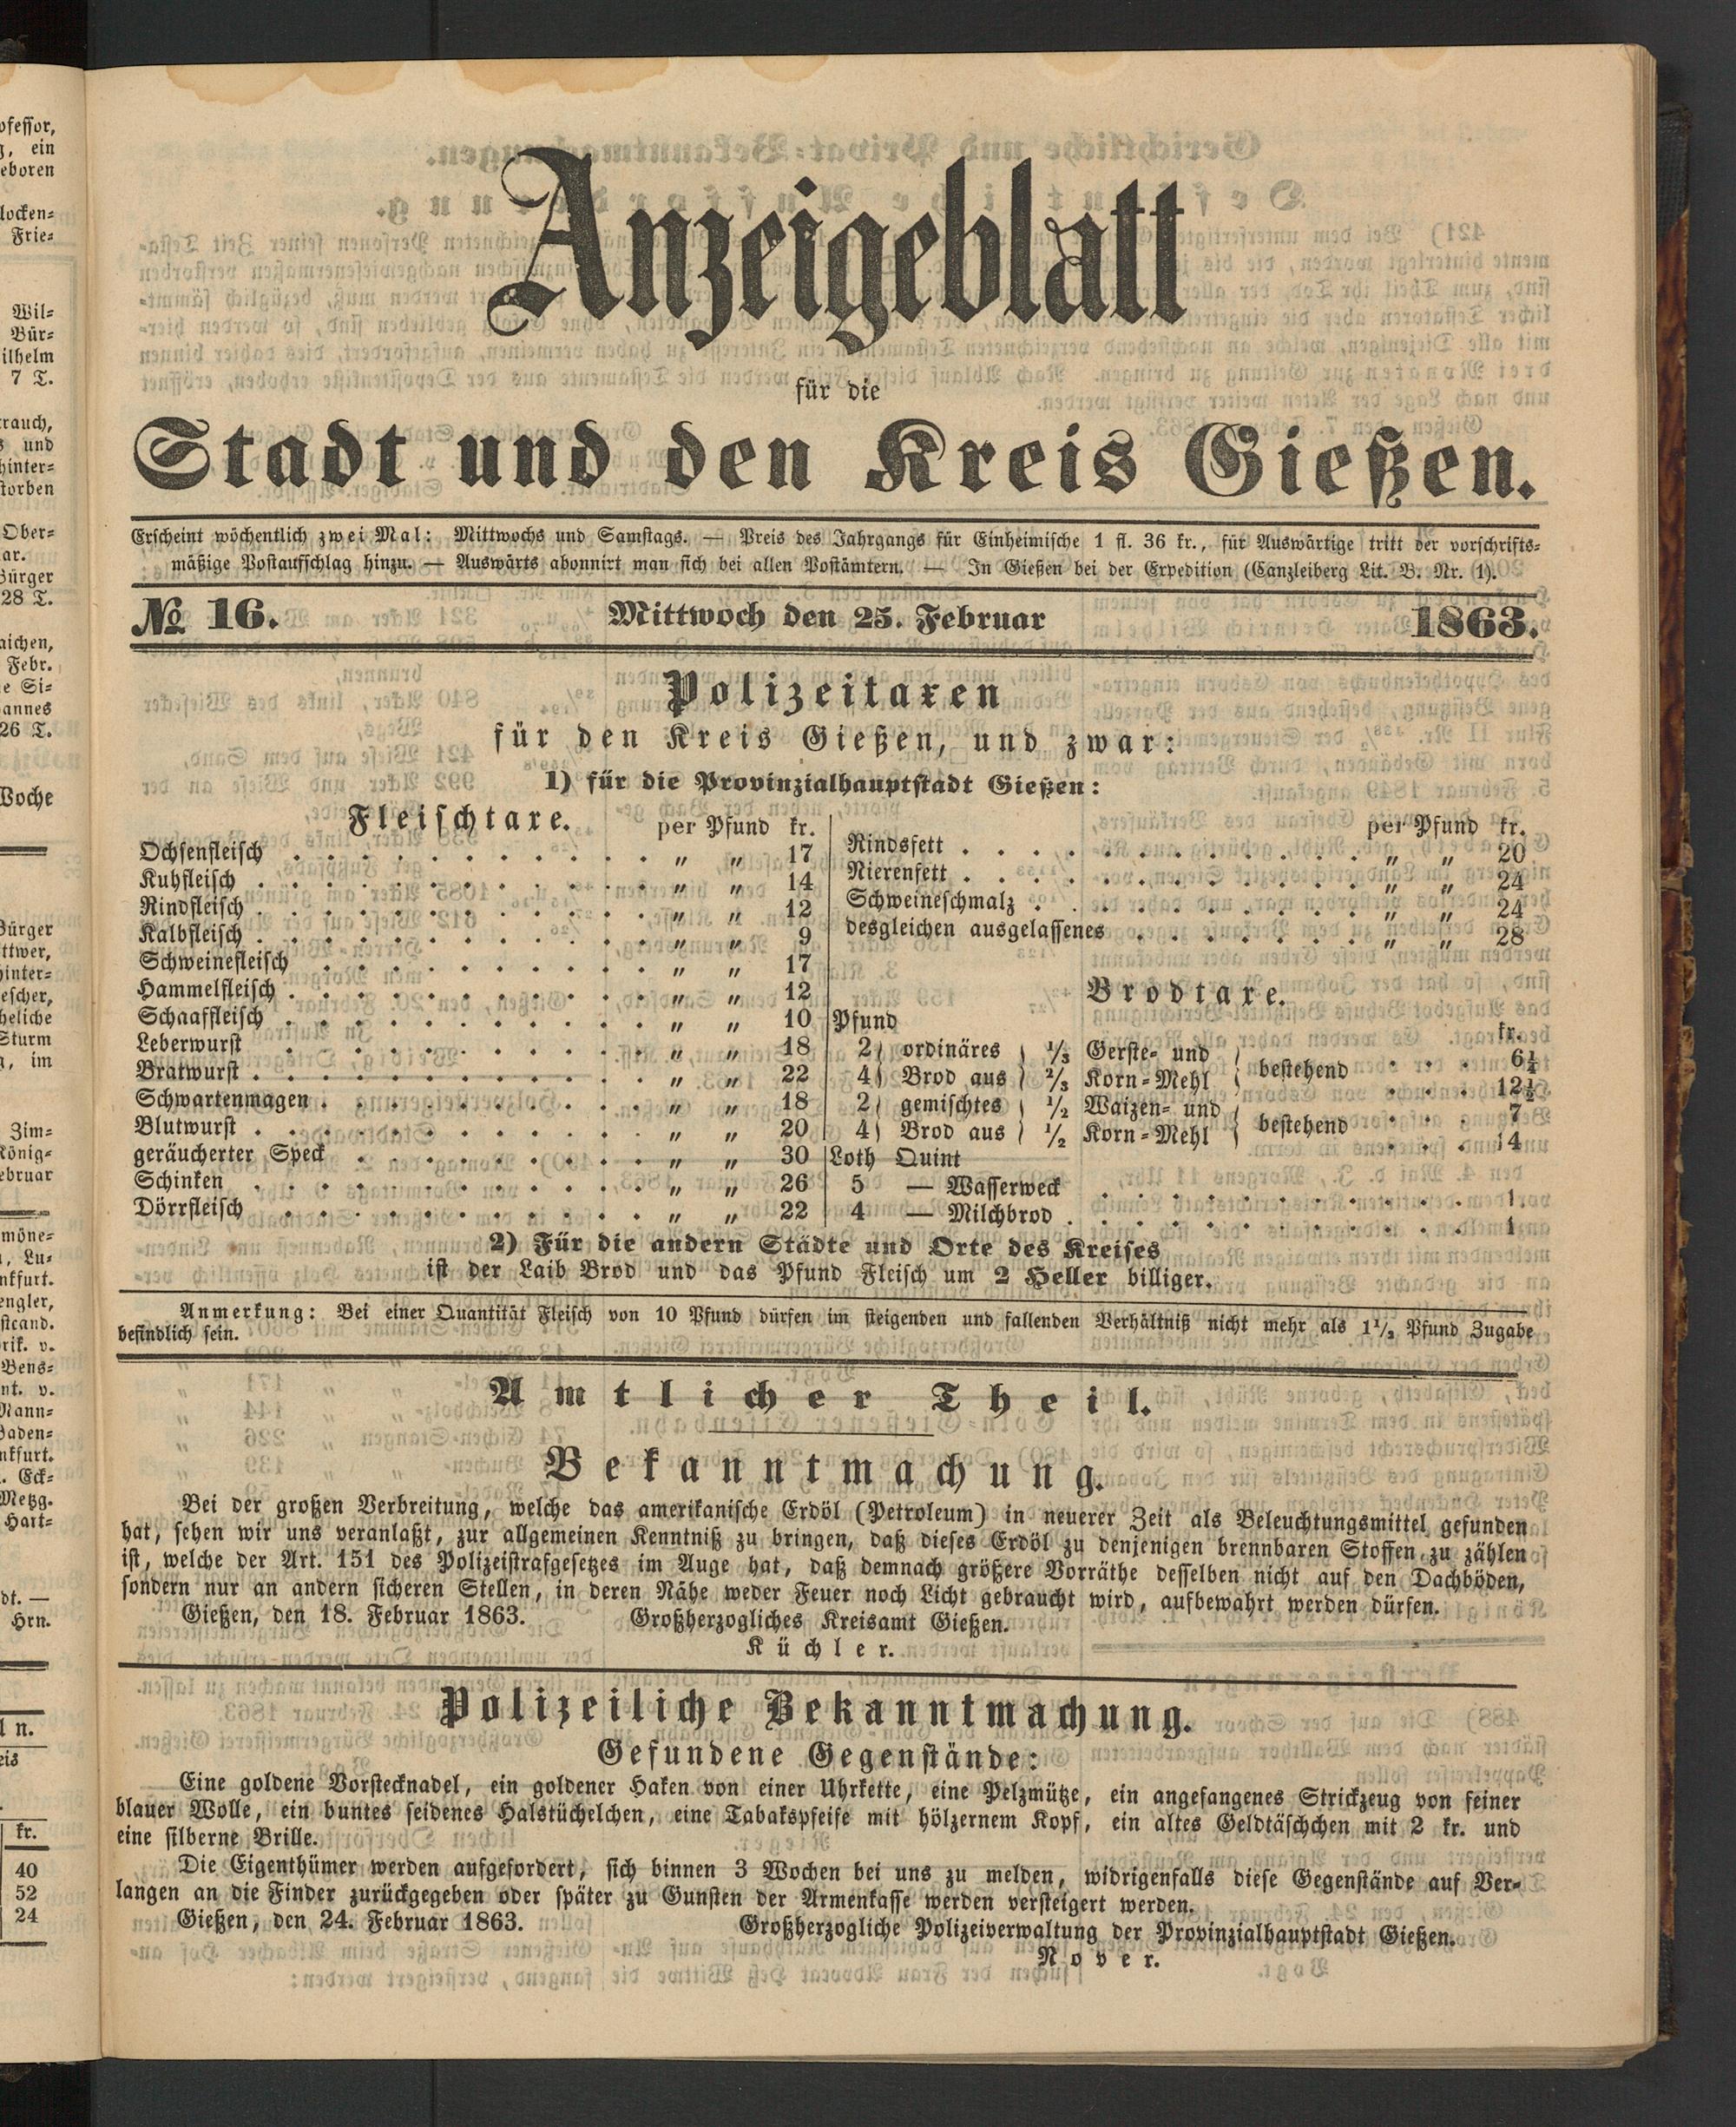 Anzeigeblatt
für die
Stadt und den Kreis Gießen.
Erscheint wöchentlich zwei Mal: Mittwochs und Samstags. — Preis des Jahrgangs für Einheimische 1 fl. 36 kr., für Auswärtige tritt der vorschrifts-
mäßige Postaufschlag hinzu. — Auswärts abonnirt man sich bei allen Postämtern. — In Gießen bei der Expedition (Canzleiberg Lit. B. Nr. 1).
№ 16. Mittwoch den 25. Februar 1863.
Polizeitaxen
für den Kreis Gießen, und zwar:
1) für die Provinzialhauptstadt Gießen:
Fleischtaxe. per Pfund kr.
Ochsenfleisch . . . „ „ 17
Kuhfleisch . . . „ „ 14
Rindfleisch . . . „ „ 12
Kalbfleisch . . . „ „ 9
Schweinefleisch . . . „ „ 17
Hammelfleisch . . . „ „ 12
Schaaffleisch . . . „ „ 10
Leberwurst . . . „ „ 18
Bratwurst . . . „ „ 22
Schwartenmagen . . . „ „ 18
Blutwurst . . . „ „ 20
geräucherter Speck . . . „ „ 30
Schinken . . . „ „ 26
Dörrfleisch . . . „ „ 22
per Pfund kr.
Rindsfett . . . „ „ 20
Nierenfett . . . „ „ 24
Schweineschmalz . . . „ „ 24
desgleichen ausgelassenes . . . „ „ 28
Brodtaxe.
Pfund kr.
2) ordinäres ) 1/3 Gerste- und } bestehend . . . 6¼
4) Brod aus ) 2/3 Korn-Mehl } . . . 12½
2) gemischtes ) 1/2 Waizen- und } bestehend . . . 7
4) Brod aus ) 1/2 Korn-Mehl } . . . 14
Loth Quint
5 — Wasserweck . . . 1
4 — Milchbrod . . . 1
2) Für die andern Städte und Orte des Kreises
ist der Laib Brod und das Pfund Fleisch um 2 Heller billiger.
Anmerkung: Bei einer Quantität Fleisch von 10 Pfund dürfen im steigenden und fallenden Verhältniß nicht mehr als 1½ Pfund Zugabe
befindlich sein.
Amtlicher Theil.
Bekanntmachung.
Bei der großen Verbreitung, welche das amerikanische Erdöl (Petroleum) in neuerer Zeit als Beleuchtungsmittel gefunden
hat, sehen wir uns veranlaßt, zur allgemeinen Kenntniß zu bringen, daß dieses Erdöl zu denjenigen brennbaren Stoffen zu zählen
ist, welche der Art. 151 des Polizeistrafgesetzes im Auge hat, daß demnach größere Vorräthe desselben nicht auf den Dachböden,
sondern nur an andern sicheren Stellen, in deren Nähe weder Feuer noch Licht gebraucht wird, aufbewahrt werden dürfen.
Gießen, den 18. Februar 1863. Großherzogliches Kreisamt Gießen.
Küchler.
Polizeiliche Bekanntmachung.
Gefundene Gegenstände:
Eine goldene Vorstecknadel, ein goldener Haken von einer Uhrkette, eine Pelzmütze, ein angefangenes Strickzeug von feiner
blauer Wolle, ein buntes seidenes Halstüchelchen, eine Tabakspfeife mit hölzernem Kopf, ein altes Geldtäschchen mit 2 kr. und
eine silberne Brille.
Die Eigenthümer werden aufgefordert, sich binnen 3 Wochen bei uns zu melden, widrigenfalls diese Gegenstände auf Ver-
langen an die Finder zurückgegeben oder später zu Gunsten der Armenkasse werden versteigert werden.
Gießen, den 24. Februar 1863. Großherzogliche Polizeiverwaltung der Provinzialhauptstadt Gießen.
Nover.